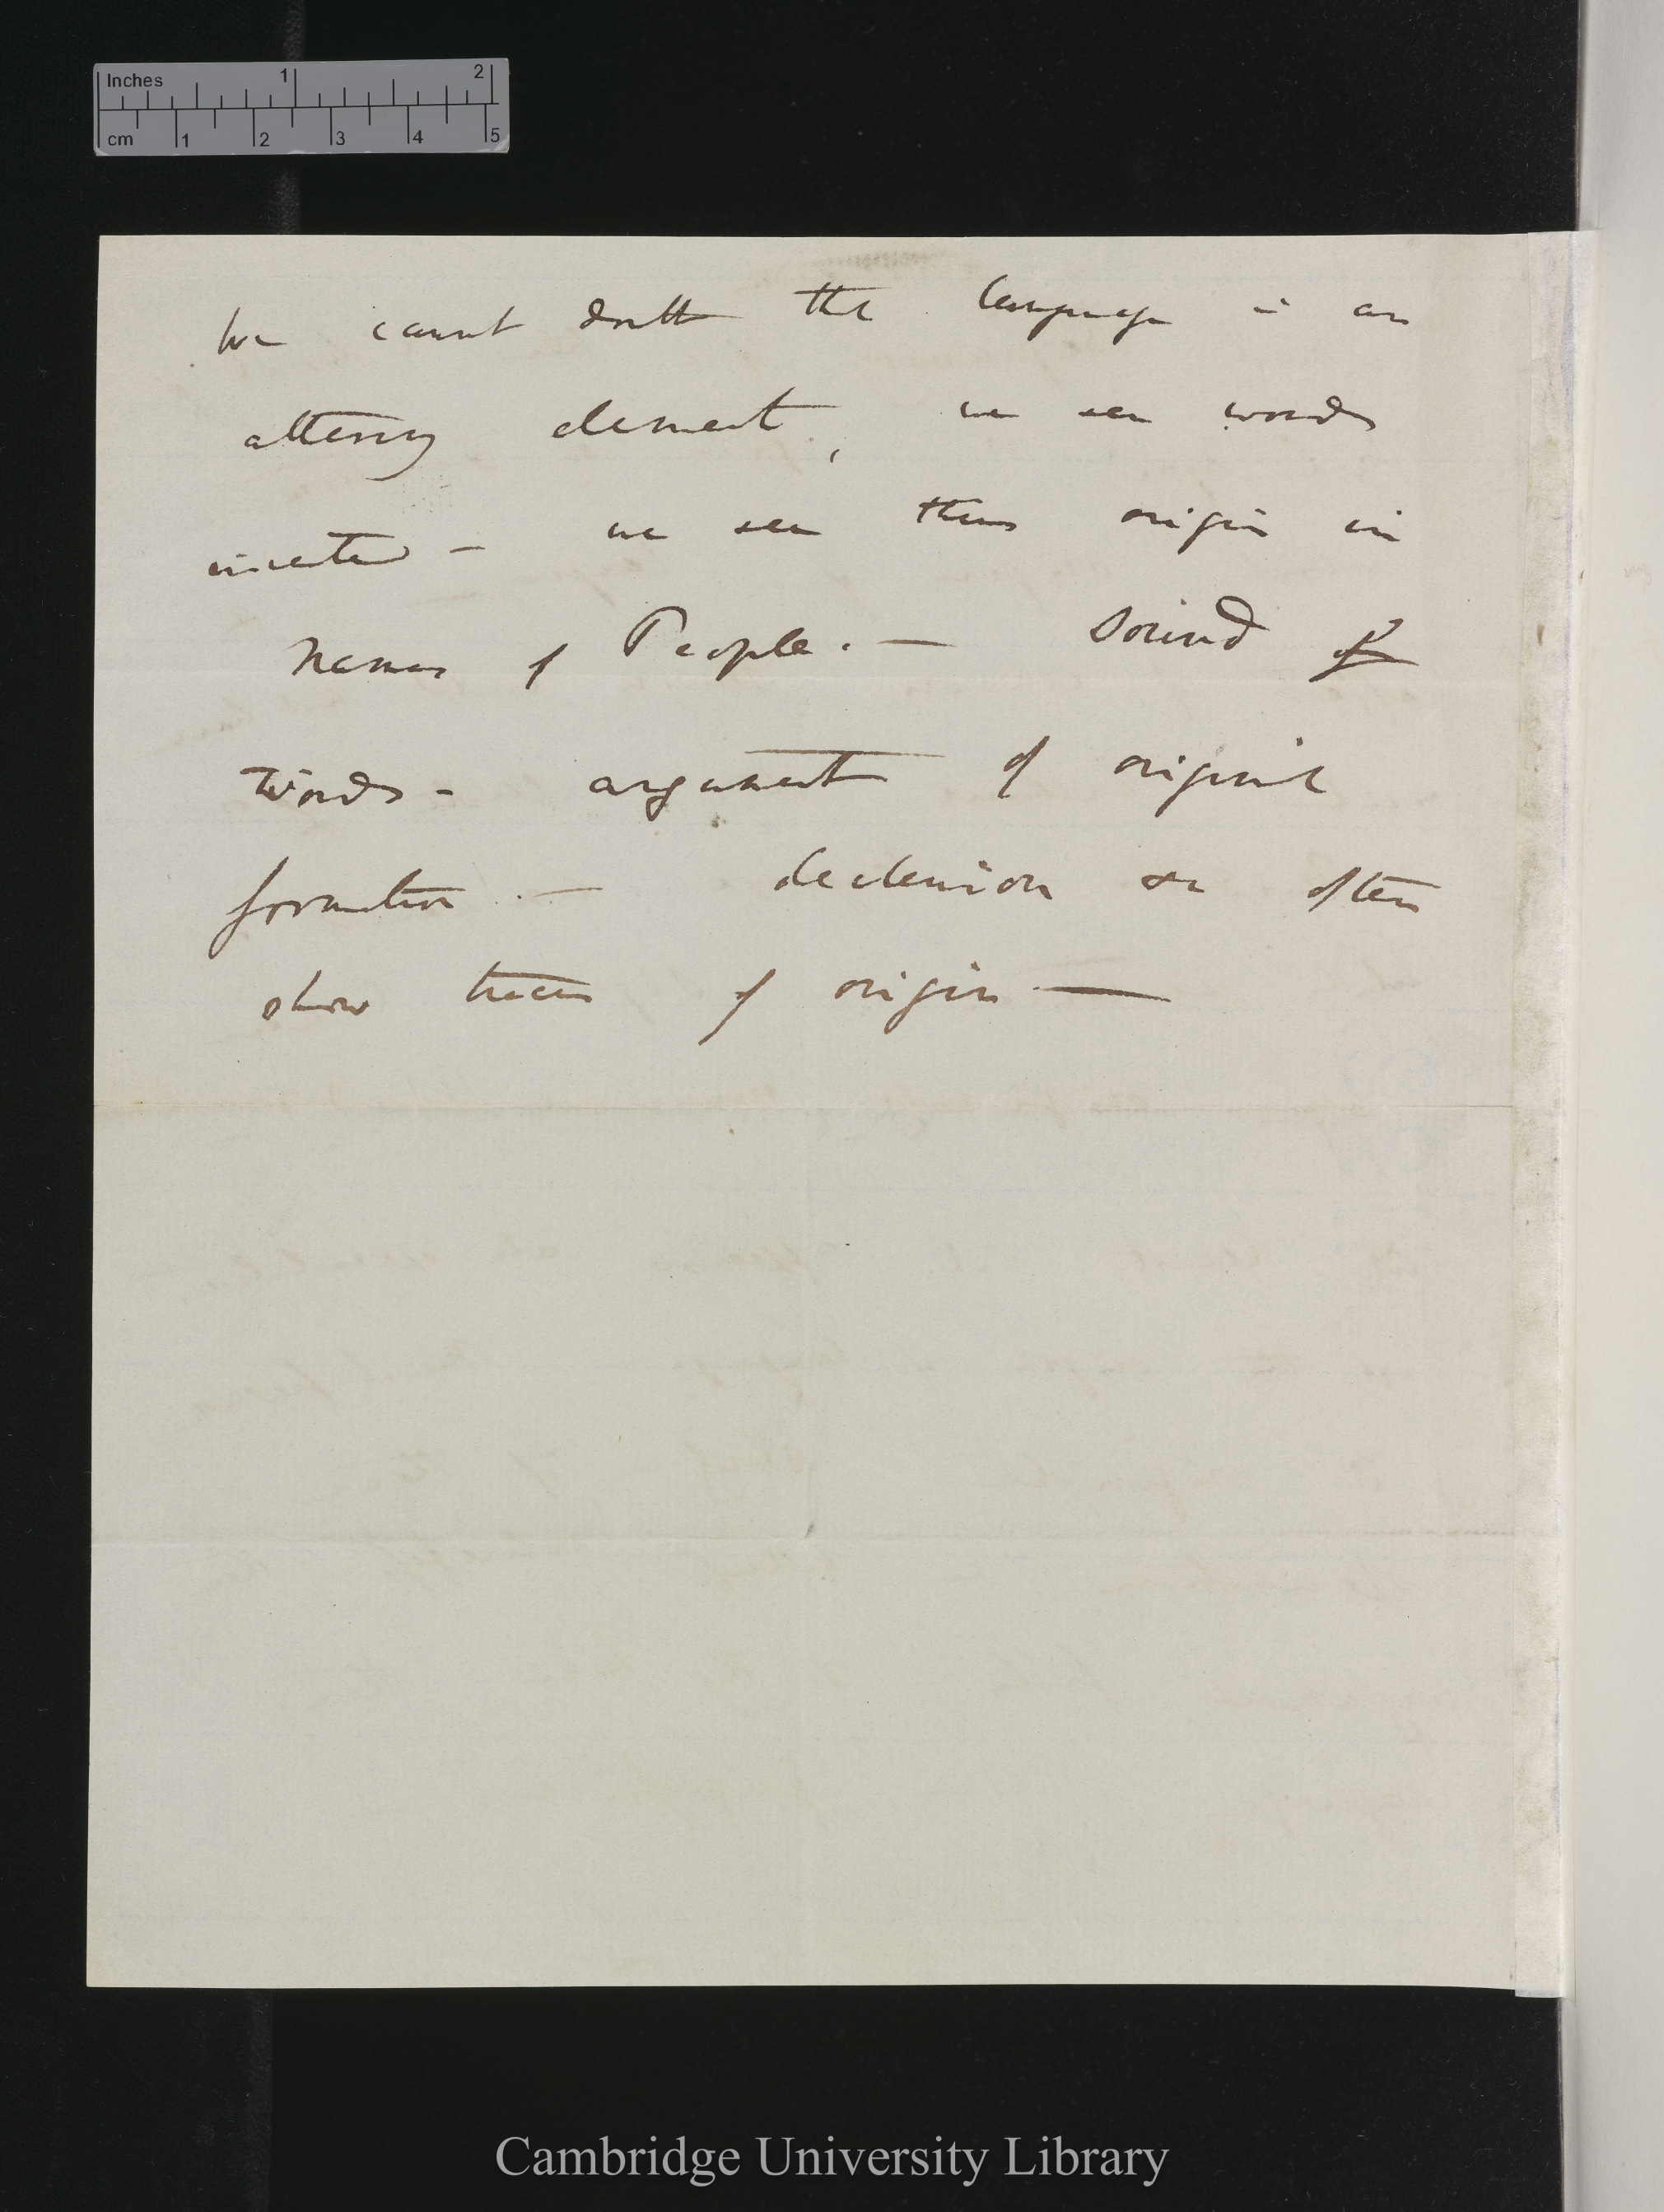 Inches 1 2
cm 1 2 3 4 5
We cannot doubt that language is an
altering element, we see words
invented — we see their origin in
names of People. — Sound of
words — argument of original
formation. — declension &c often
show traces of origin —
Cambridge University Library